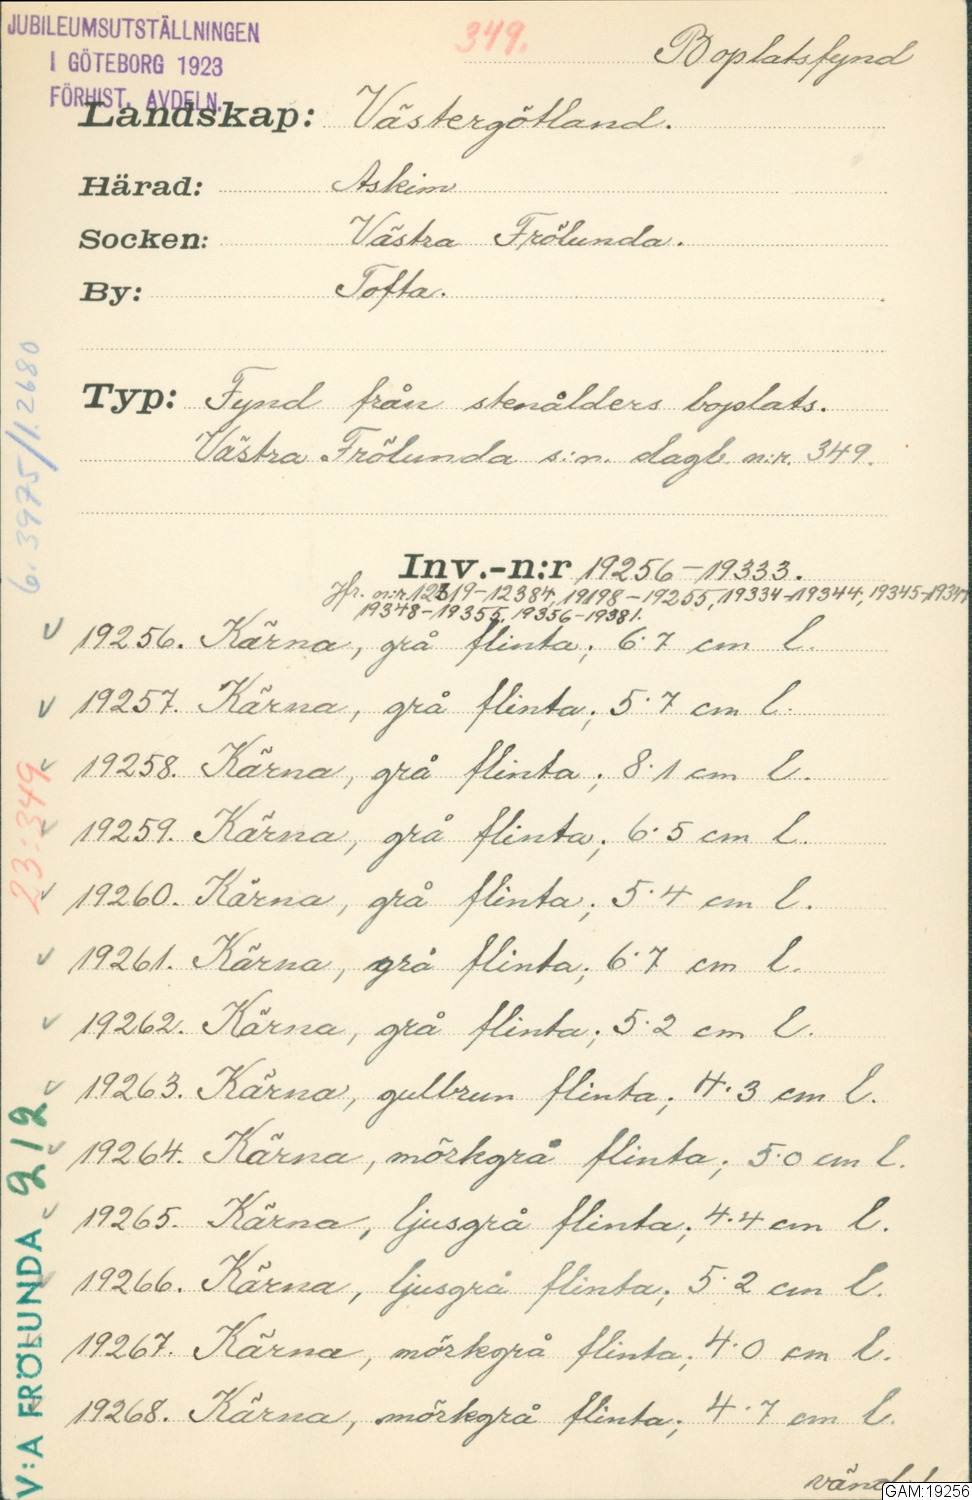 JUBILEUMSUTSTÄLLNINGEN
I GÖTEBORG 1923
FÖRHIST. AVDELN.
349.
Boplatsfynd
Landskap: Västergötland.
Härad: Askim
Socken: Västra Frölunda.
By: Tofta.
Typ: Fynd från stenålders boplats.
Västra Frölunda s:n. dagb. n:r. 349.
Inv.-n:r 19256-19333.
Jfr. n:r 12319-12384, 19198-19255, 19334-19344, 19345-19347
19348-19355, 19356-19381.
19256. Kärna, grå flinta; 6.7 cm l.
19257. Kärna, grå flinta; 5.7 cm l.
19258. Kärna, grå flinta; 8.1 cm l.
19259. Kärna, grå flinta; 6.5 cm l.
19260. Kärna, grå flinta; 5.4 cm l.
19261. Kärna, grå flinta; 6.7 cm l.
19262. Kärna, grå flinta; 5.2 cm l.
19263. Kärna, gulbrun flinta; 4.3 cm l.
19264. Kärna, mörkgrå flinta; 5.0 cm l.
19265. Kärna, ljusgrå flinta; 4.4 cm l.
19266. Kärna, ljusgrå flinta; 5.2 cm l.
19267. Kärna, mörkgrå flinta; 4.0 cm l.
19268. Kärna, mörkgrå flinta; 4.7 cm l.
GAM:19256
6.3975/1.2680
23:349
V:A FRÖLUNDA 212